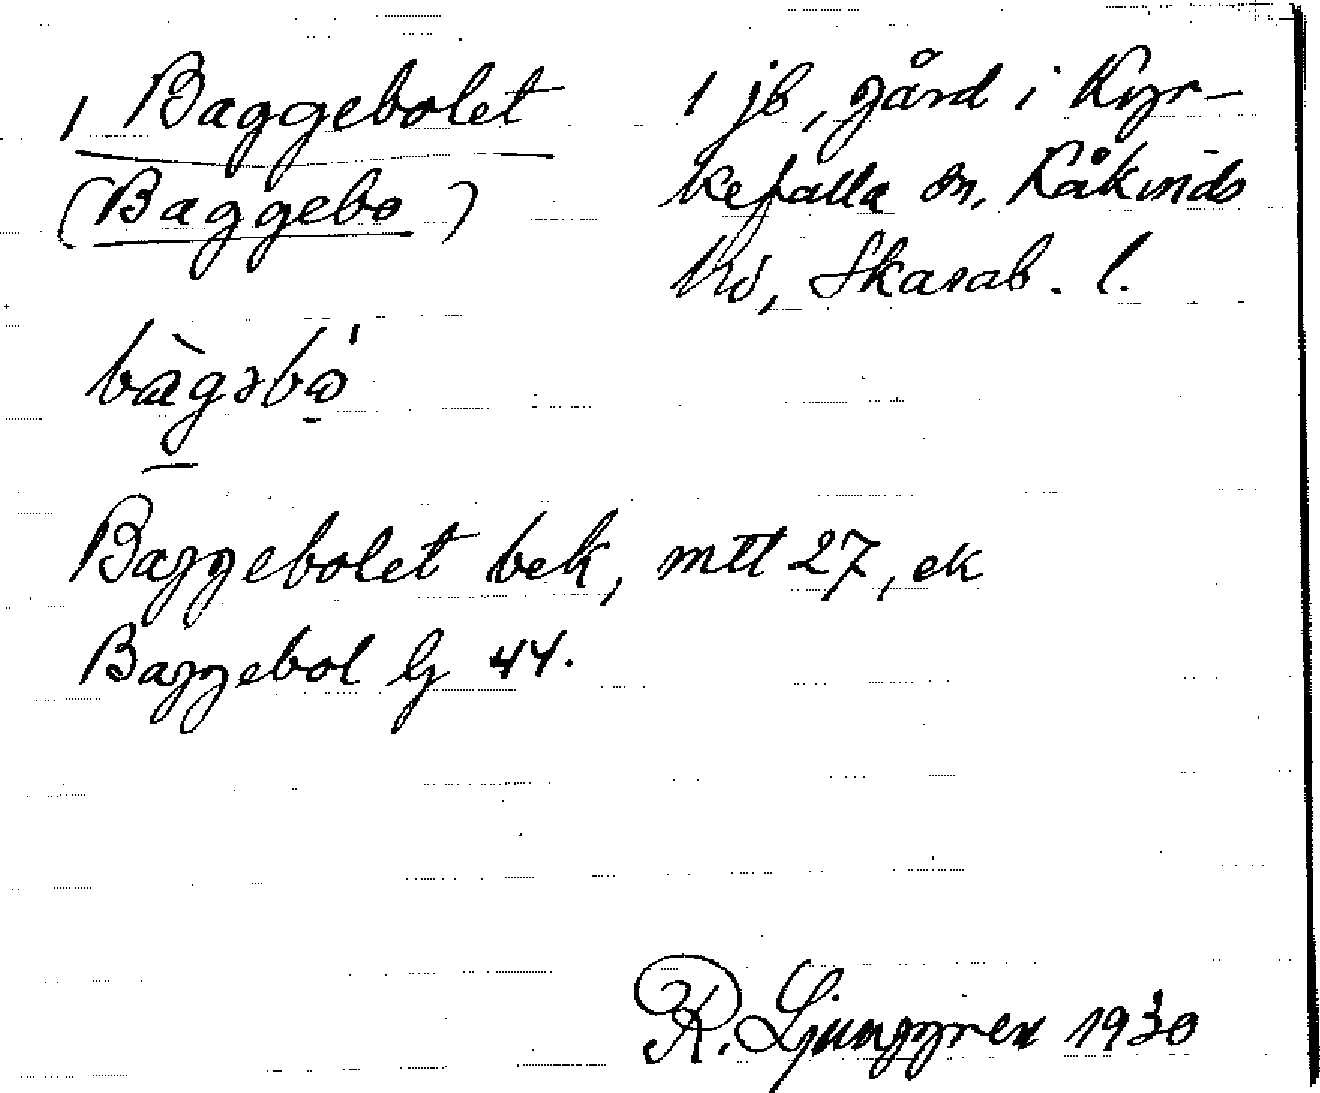 1 Baggebolet
(Baggebo)
1 jb, gård i Kyr-
kefalla sn, Kåkinds
hd, Skarab. l.
bàgəbo̱̍
Baggebolet bek, mtt 27, ek
Baggebol G 44.
R. Ljunggren 1930